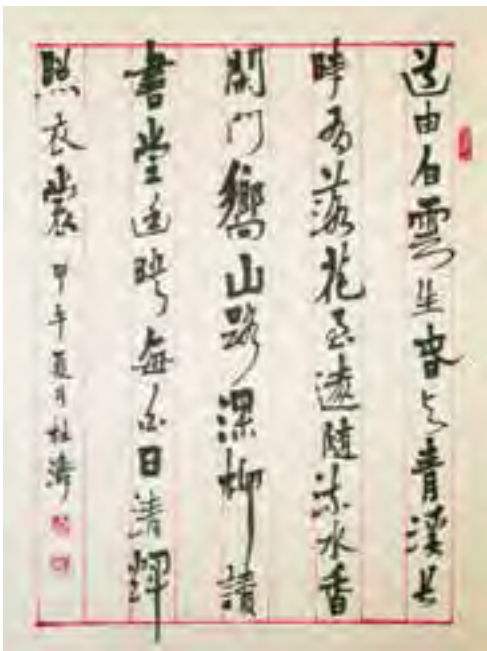 道由白雲生春与青溪長
時有落花至遠隨流水香
閑門嚮山路深柳讀
書堂幽映每白日清輝
照衣裳 甲午夏月杜濤